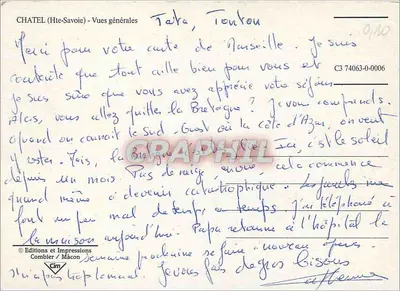 CHATEL (Hte-Savoie) - Vues générales
Tata, Tonton
0,10
Merci pour votre carte de Marseille. Je suis
contente que tout aille bien pour vous et
je suis sûre que vous avez apprécié votre séjour.
C3 74063-0-0006
Alors, vous allez quitter la Bretagne? Je vous comprends.
quand on connait le Sud-Ouest ou la côte d'Azur, on veut
y rester. Mais, la Ici, c'est le soleil
depuis un mois. Pas de neige, cela commence
GRAPHIL
quand même à devenir catastrophique.
font un peu mal J'ai téléphoné à
la maison aujourd'hui. Papa retourne à l'hôpital la
semaine prochaine se faire
© Editions et Impressions
Combier / Mâcon
cim
Je vous fais de gros bisous